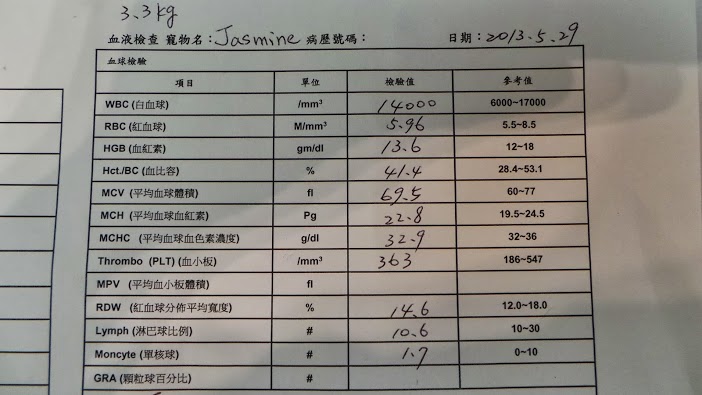 3.3kg
血液檢查 寵物名：Jasmine 病歷號碼： 日期：2013.5.29
血球檢驗
項目 單位 檢驗值 參考值
WBC (白血球) /mm³ 14000 6000~17000
RBC (紅血球) M/mm³ 5.96 5.5~8.5
HGB (血紅素) gm/dl 13.6 12~18
Hct./BC (血比容) % 41.4 28.4~53.1
MCV (平均血球體積) fl 69.5 60~77
MCH (平均血球血紅素) Pg 22.8 19.5~24.5
MCHC (平均血球血色素濃度) g/dl 32.9 32~36
Thrombo (PLT) (血小板) /mm³ 363 186~547
MPV (平均血小板體積) fl
RDW (紅血球分佈平均寬度) % 14.6 12.0~18.0
Lymph (淋巴球比例) # 10.6 10~30
Moncyte (單核球) # 1.7 0~10
GRA (顆粒球百分比) #